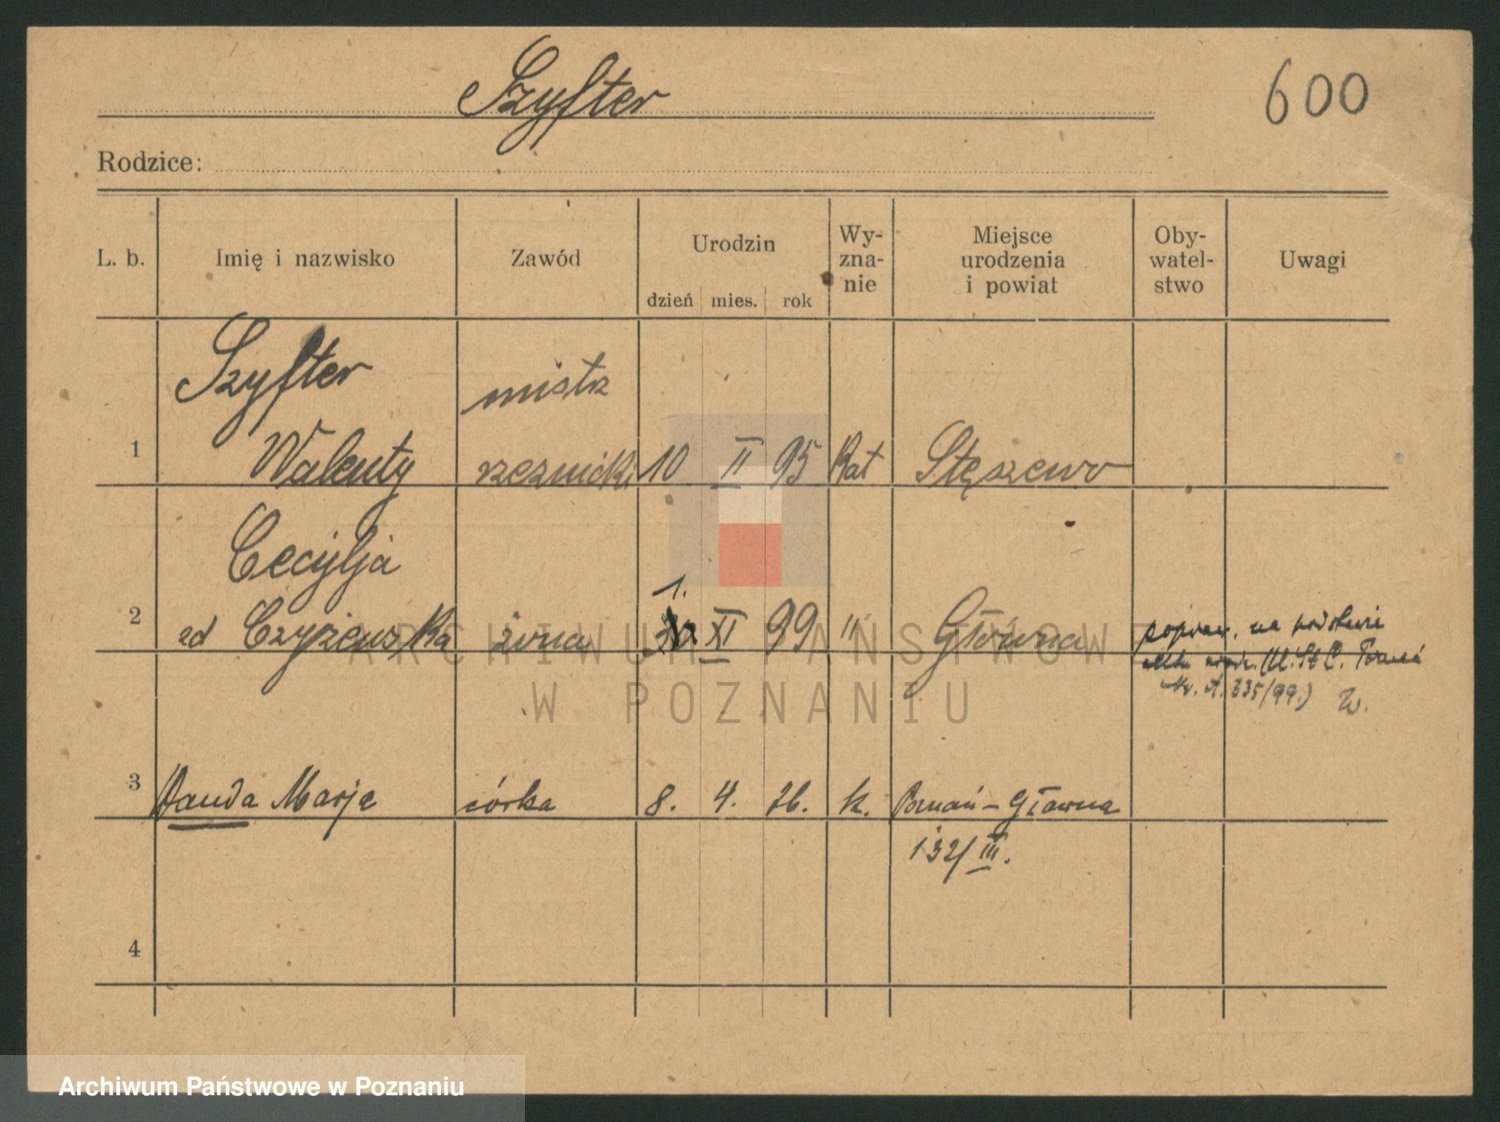 Szyfter
600
Rodzice:
L. b. Imię i nazwisko Zawód Urodzin dzień mies. rok Wy-zna-nie Miejsce urodzenia i powiat Oby-watel-stwo Uwagi
Szyfter mistrz
1 Walenty rzeźnicki 10 II 95 Kat Stęszewo
Cecylja
1.
2 zd Czyżewska żona XI 99 " Główna popraw. na podstawie
aktu urodz. (U. St C. Poznań
Nr. A. 335/99.)
3 Wanda Marja córka 8. 4. 26. k. Poznań-Główna
132/III.
4
ARCHIWUM PAŃSTWOWE
W POZNANIU
Archiwum Państwowe w Poznaniu